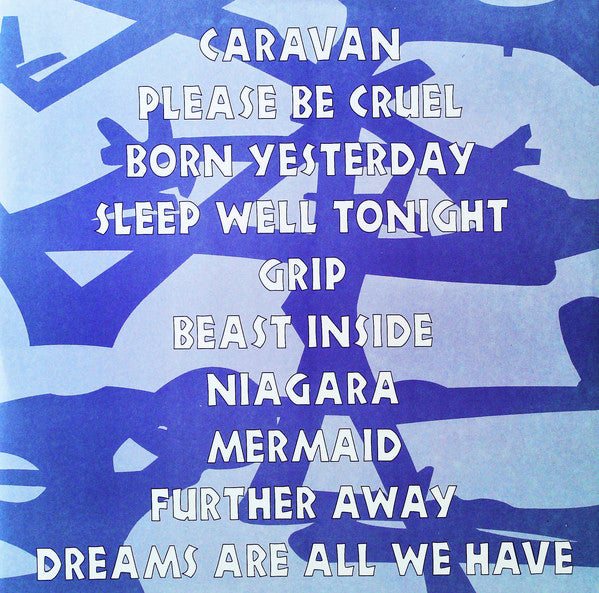 CARAVAN
PLEASE BE CRUEL
BORN YESTERDAY
SLEEP WELL TONIGHT
GRIP
BEAST INSIDE
NIAGARA
MERMAID
FURTHER AWAY
DREAMS ARE ALL WE HAVE